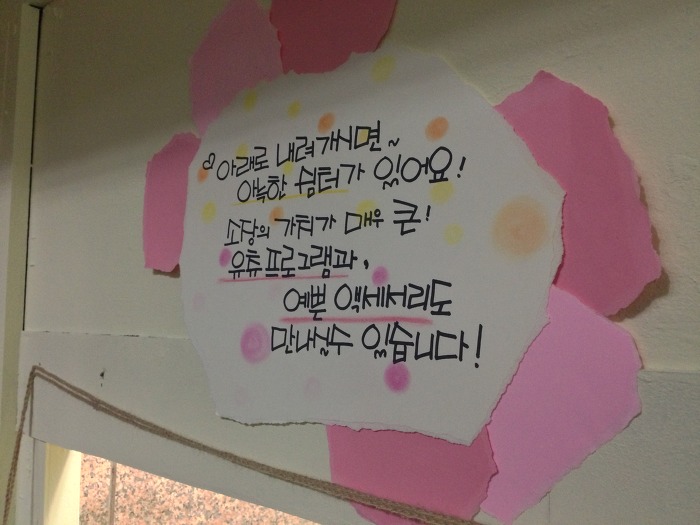 아래로 내려가시면~
아늑한 쉼터가 있어요!
소장의 가치가 매우 큰!
유츄프로그램과,
예쁜 액세서리도
만나실수 있습니다!